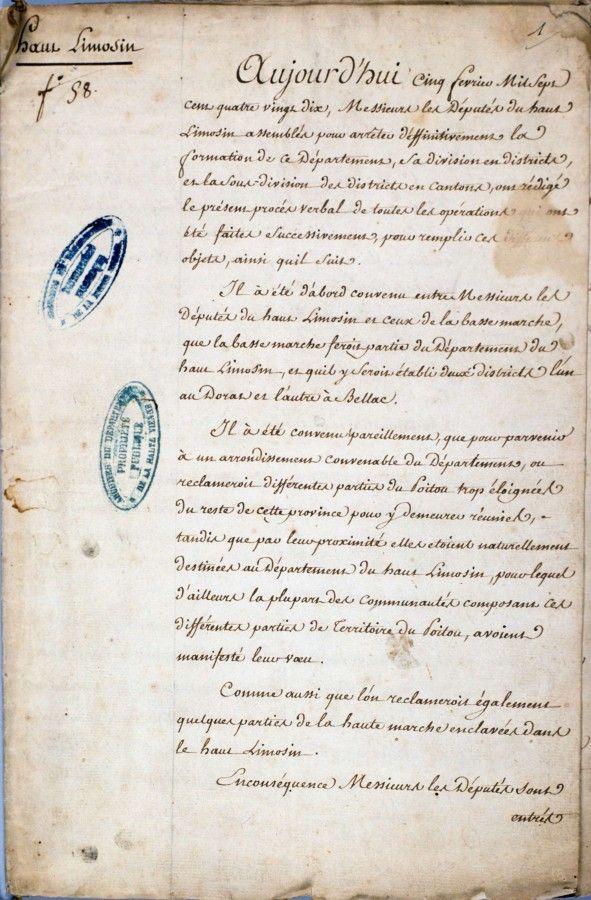 haut Limosin
fº 58.
1
Aujourd'hui Cinq fevrier Mil Sept
Cent quatre vingt dix, Messieurs les Députés du haut
Limosin assemblés pour arrêter déffinitivement la
formation de ce Département, Sa division en districts,
et la Sous-division des districts en Cantons, ont rédigé
le présent procés verbal de toutes les opérations qui ont
été faites Successivement, pour remplir ces
objets, ainsi quil Suit.
Il à été d'abord convenu entre Messieurs les
Députés du haut Limosin et ceux de la basse marche,
que la basse marche feroit partie du Département du
haut Limosin, et quil y Seroit établi deux districts L'un
au Dorat et L'autre à Bellac.
Il à été convenu pareillement, que pour parvenir
à un arrondissement convenable du Département, on
reclameroit différentes parties du Poitou trop éloignées
du reste de Cette province pour y demeurer réunies, -
tandis que par leur proximité elles etoient naturellement
destinées au Département du haut Limosin, pour lequel
d'ailleurs la plupart des Communautés composant ces
différentes parties de Territoire du Poitou, avoient
manifesté leur vœu.
Comme aussi que l'ón reclameroit également
quelques parties de la haute marche enclavées dans
le haut Limosin.
Enconséquence Messieurs les Députés Sont
entrés
ARCHIVES DU DÉPARTEMENT
DE LA HAUTE VIENNE
PROPRIÉTÉ
PUBLIQUE